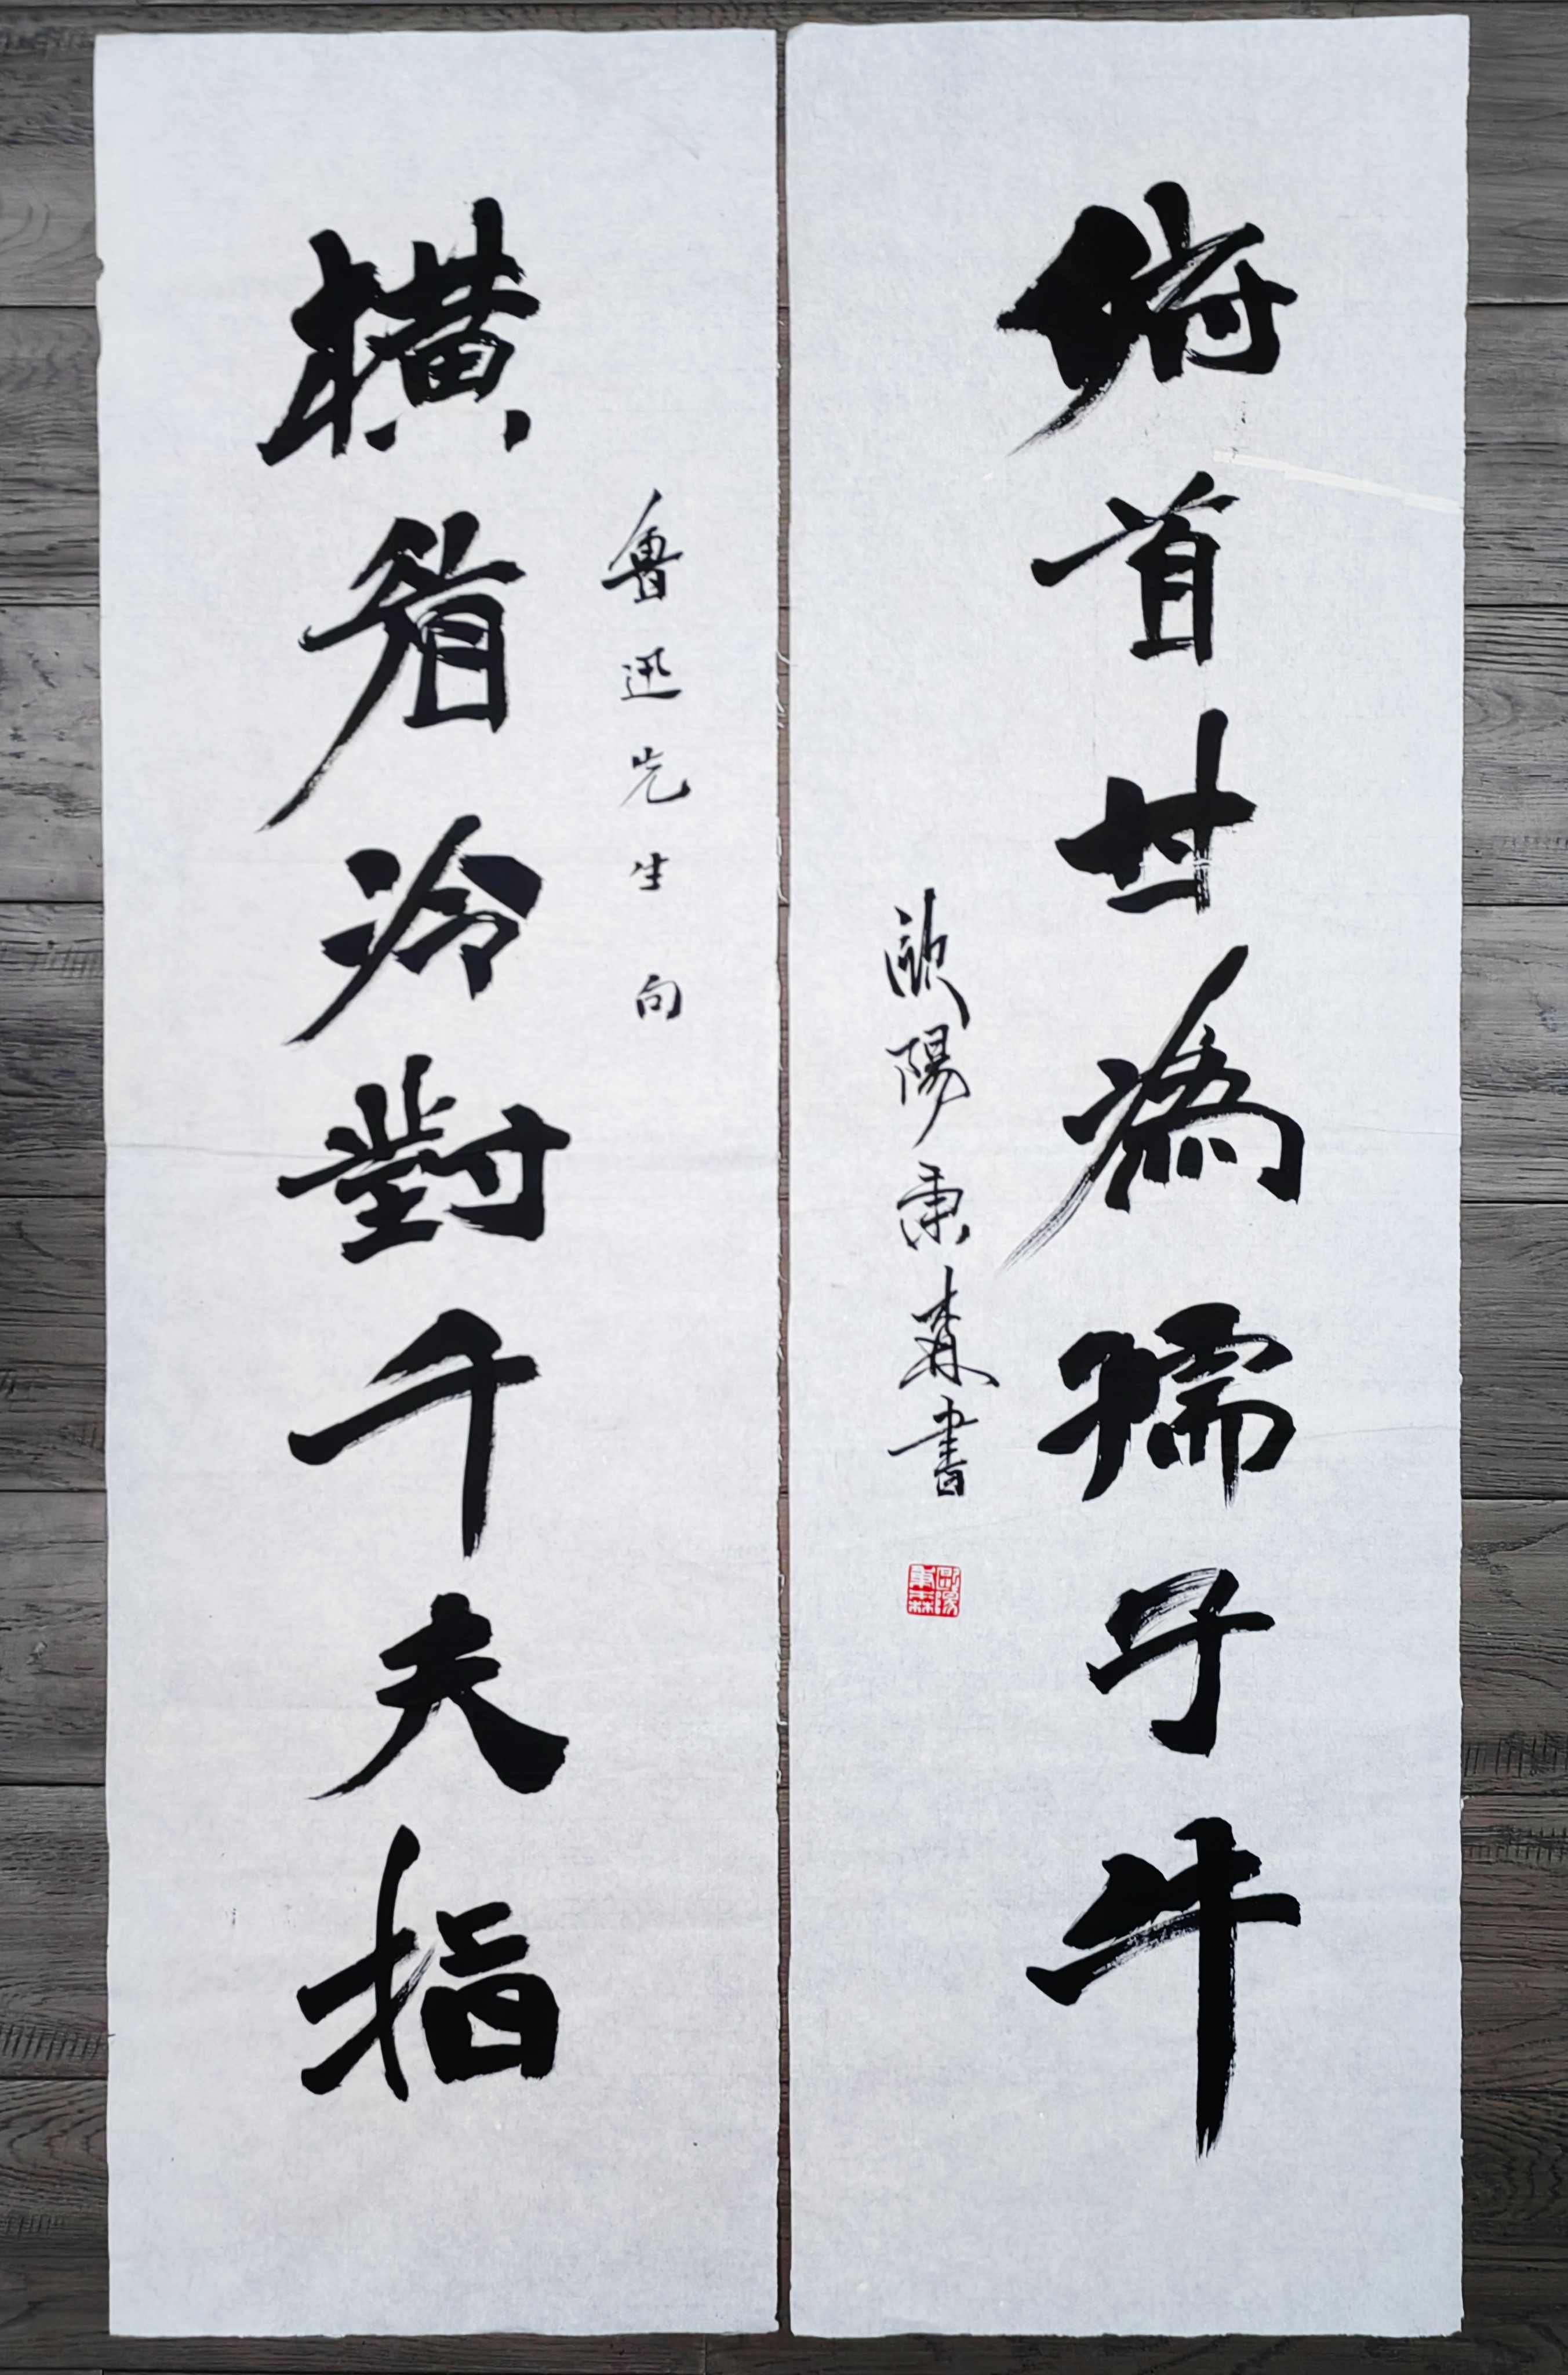 横眉冷對千夫指
魯迅先生句
俯首甘為孺子牛
歐陽秉森書
歐陽秉森